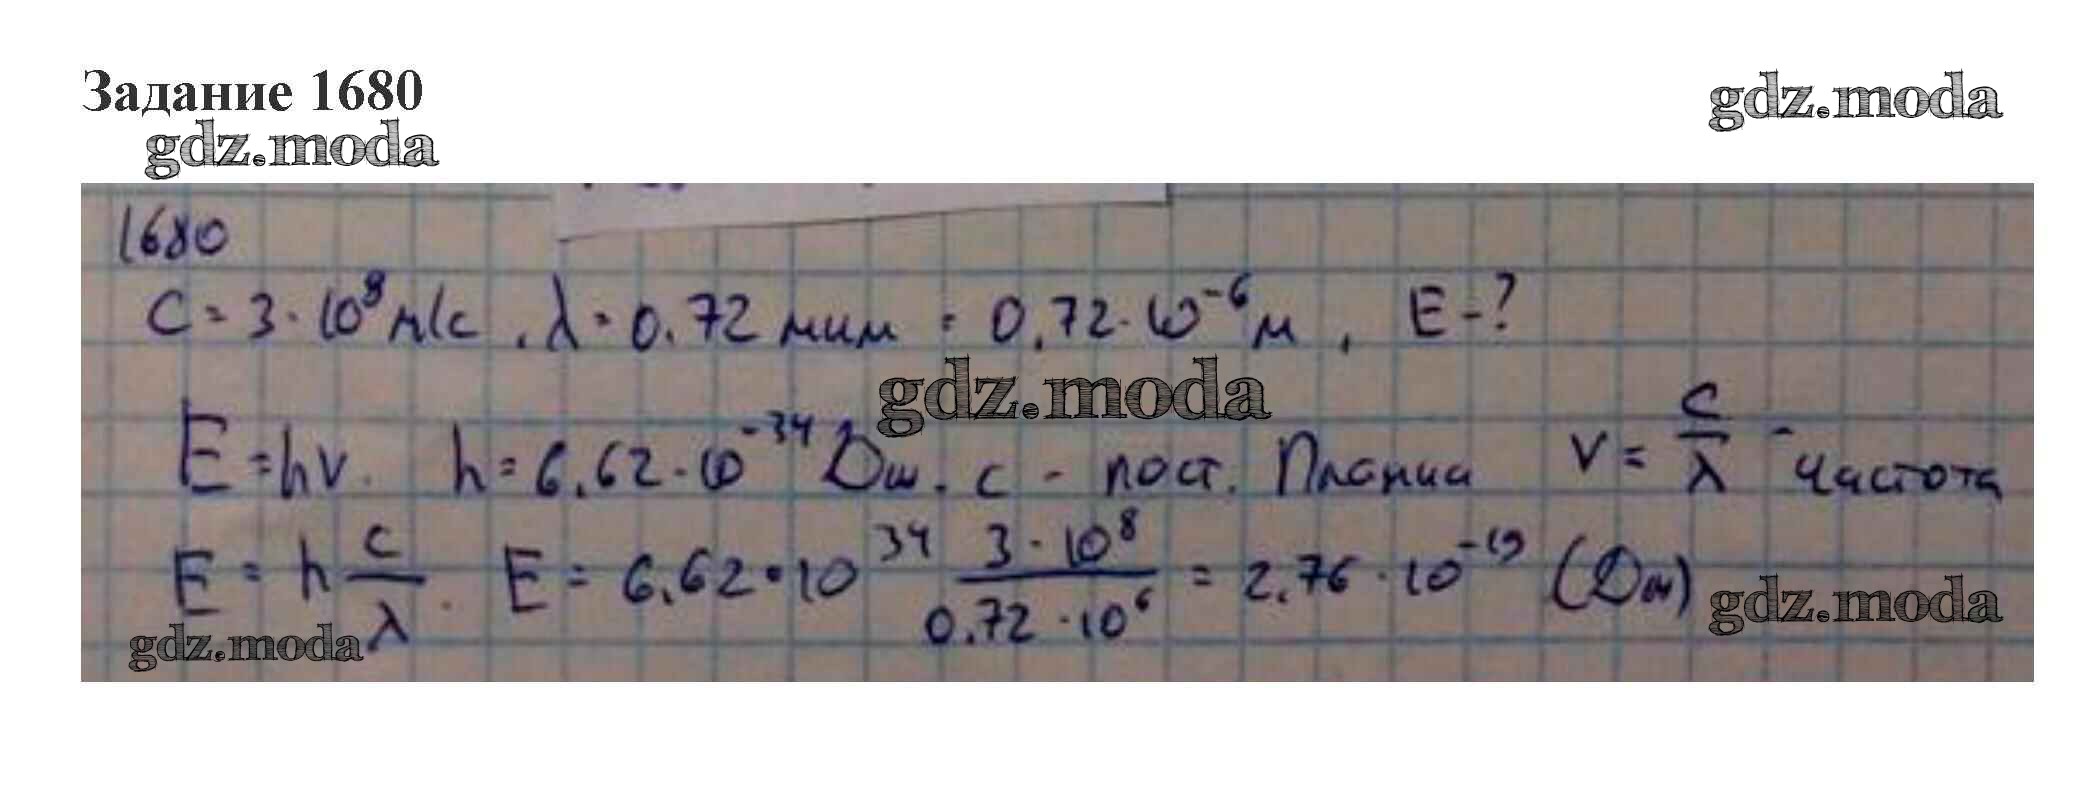 Задание 1680
gdz.moda
gdz.moda
1680
C = 3 · 10⁸ м/с, λ = 0.72 мкм = 0.72 · 10⁻⁶ м, E - ?
gdz.moda
E = hν. h = 6.62 · 10⁻³⁴ Дж · с - пост. Планка ν = c/λ - частота
E = h c/λ. E = 6.62 · 10³⁴ 3 · 10⁸ / 0.72 · 10⁶ = 2.76 · 10⁻¹⁹ (Дж)
gdz.moda
gdz.moda